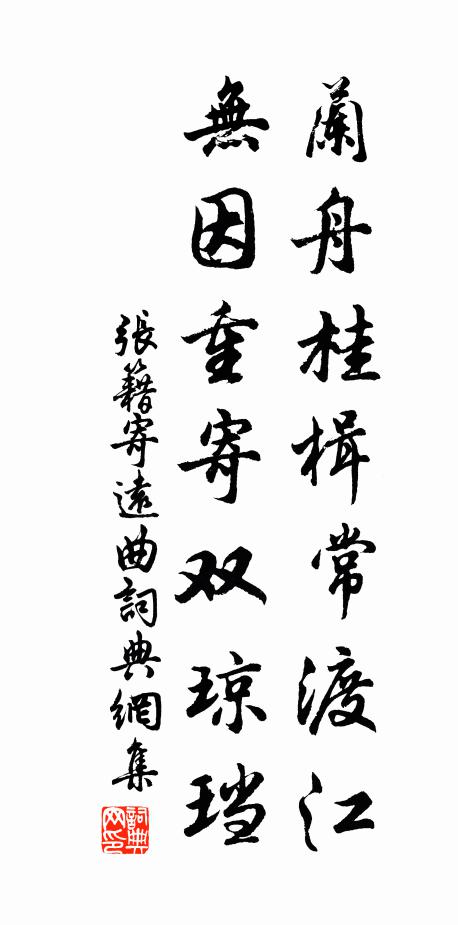 蘭舟桂楫常渡江
無因重寄双琼珰
張籍寄遠曲詞典網集
詞典
网印